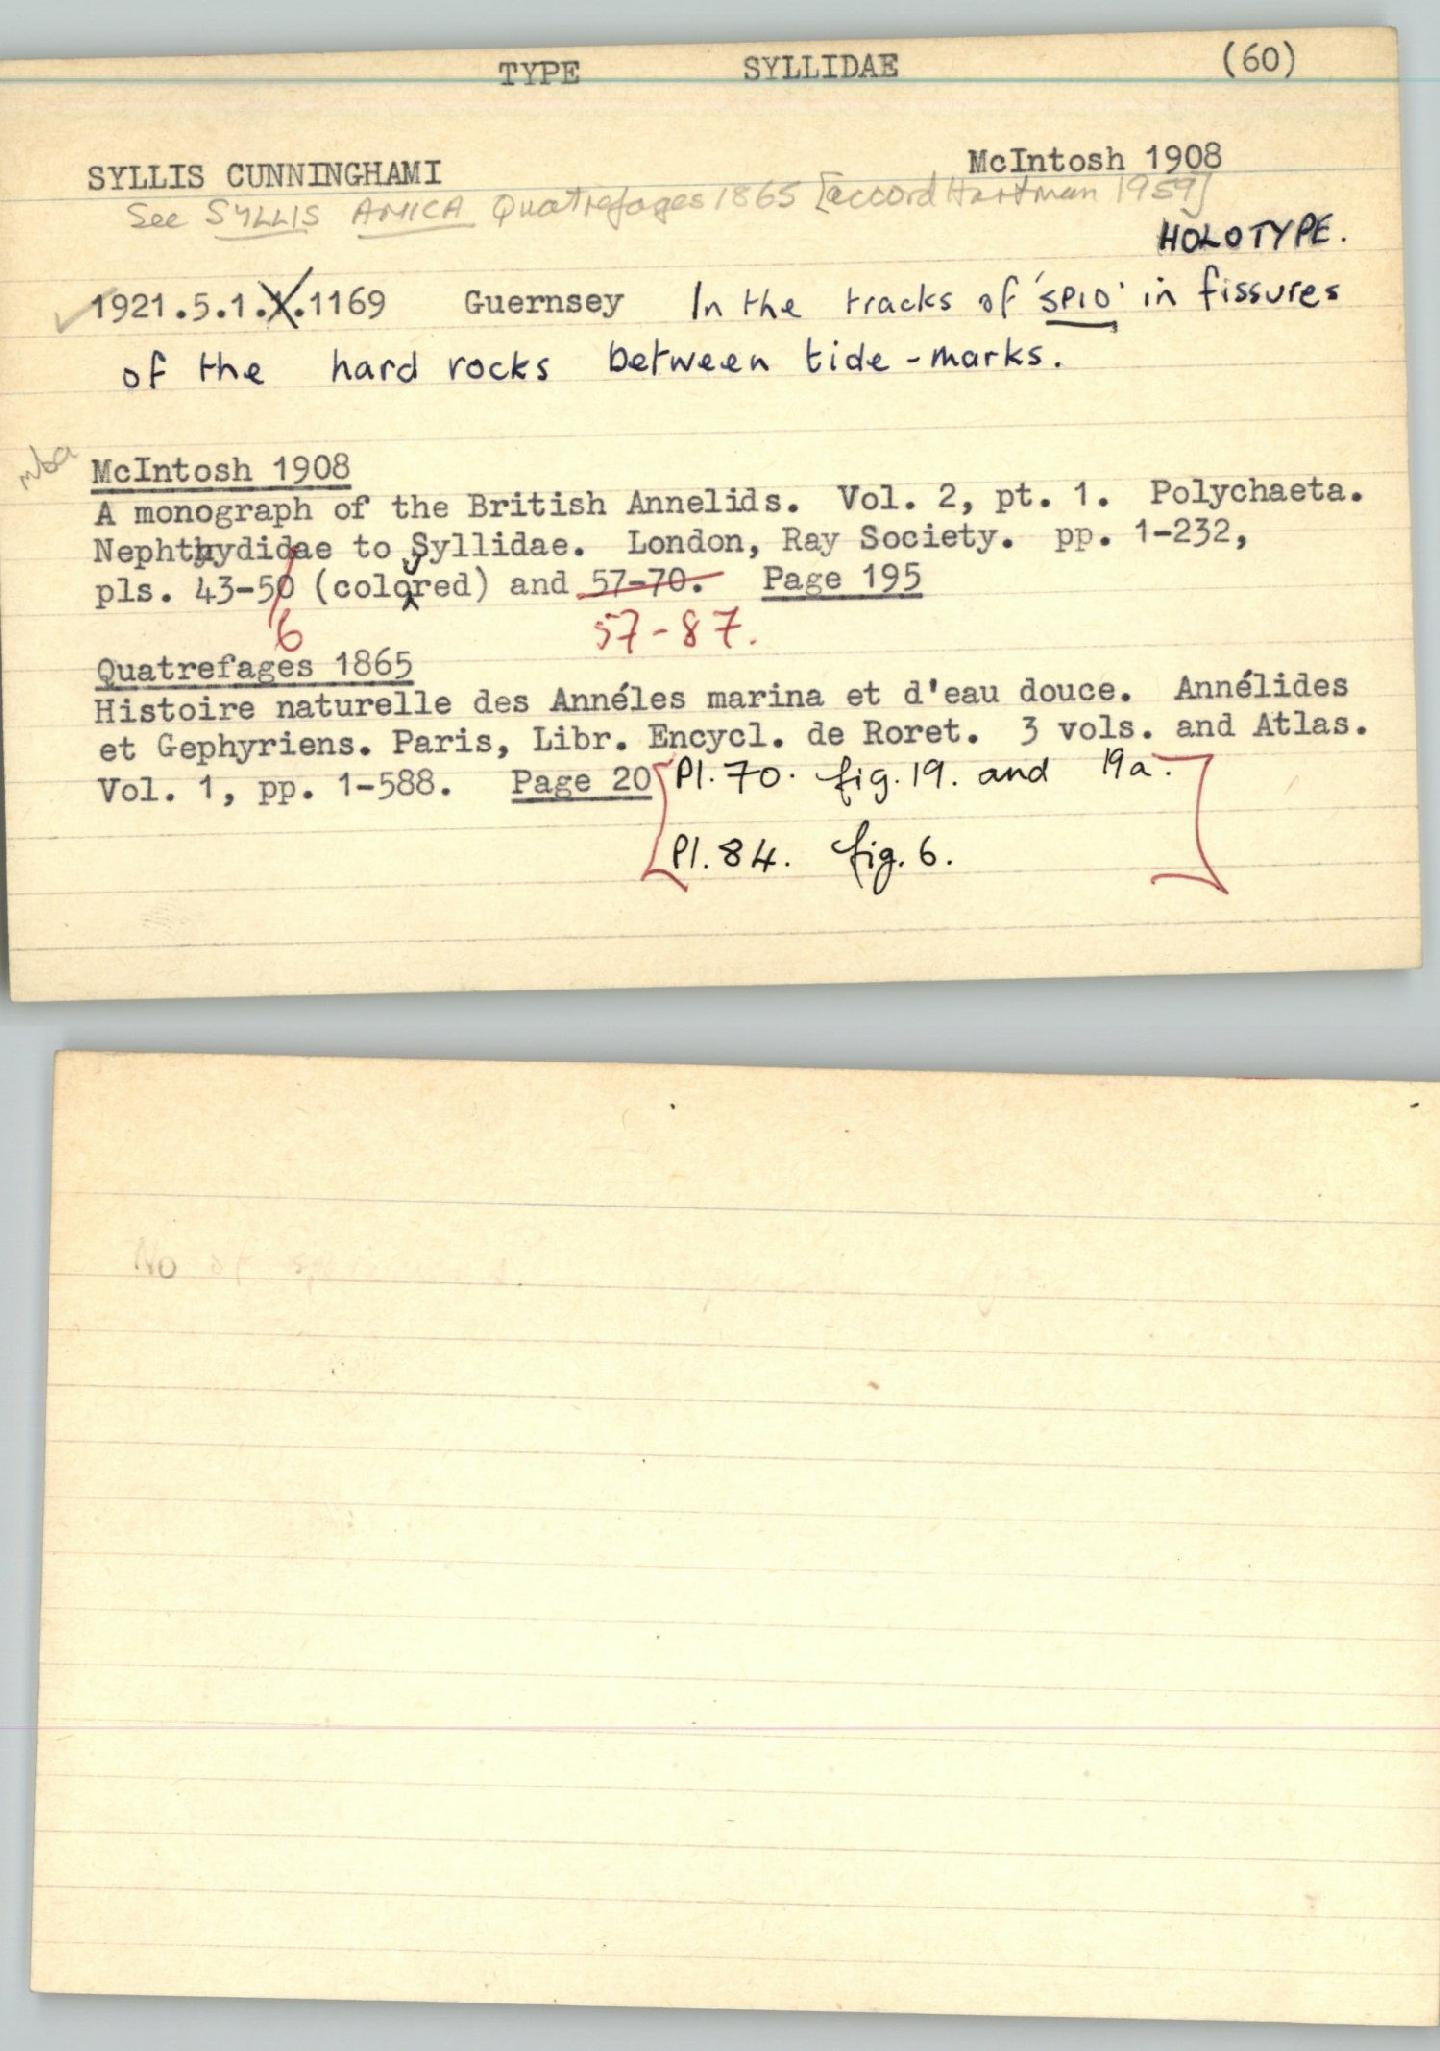 TYPE SYLLIDAE (60)
SYLLIS CUNNINGHAMI McIntosh 1908
See SYLLIS AMICA Quatrefages 1865 [accord Hartman 1959]
HOLOTYPE.
1921.5.1.1.1169 Guernsey In the tracks of 'SPIO' in fissures
of the hard rocks between tide-marks.
mba
McIntosh 1908
A monograph of the British Annelids. Vol. 2, pt. 1. Polychaeta.
Nephthydidae to Syllidae. London, Ray Society. pp. 1-232,
pls. 43-50 (colored) and 57-70. Page 195
6 u 57-87.
Quatrefages 1865
Histoire naturelle des Annéles marina et d'eau douce. Annélides
et Gephyriens. Paris, Libr. Encycl. de Roret. 3 vols. and Atlas.
Vol. 1, pp. 1-588. Page 20 [Pl. 70. fig. 19. and 19a.
Pl. 84. fig. 6.]
No of